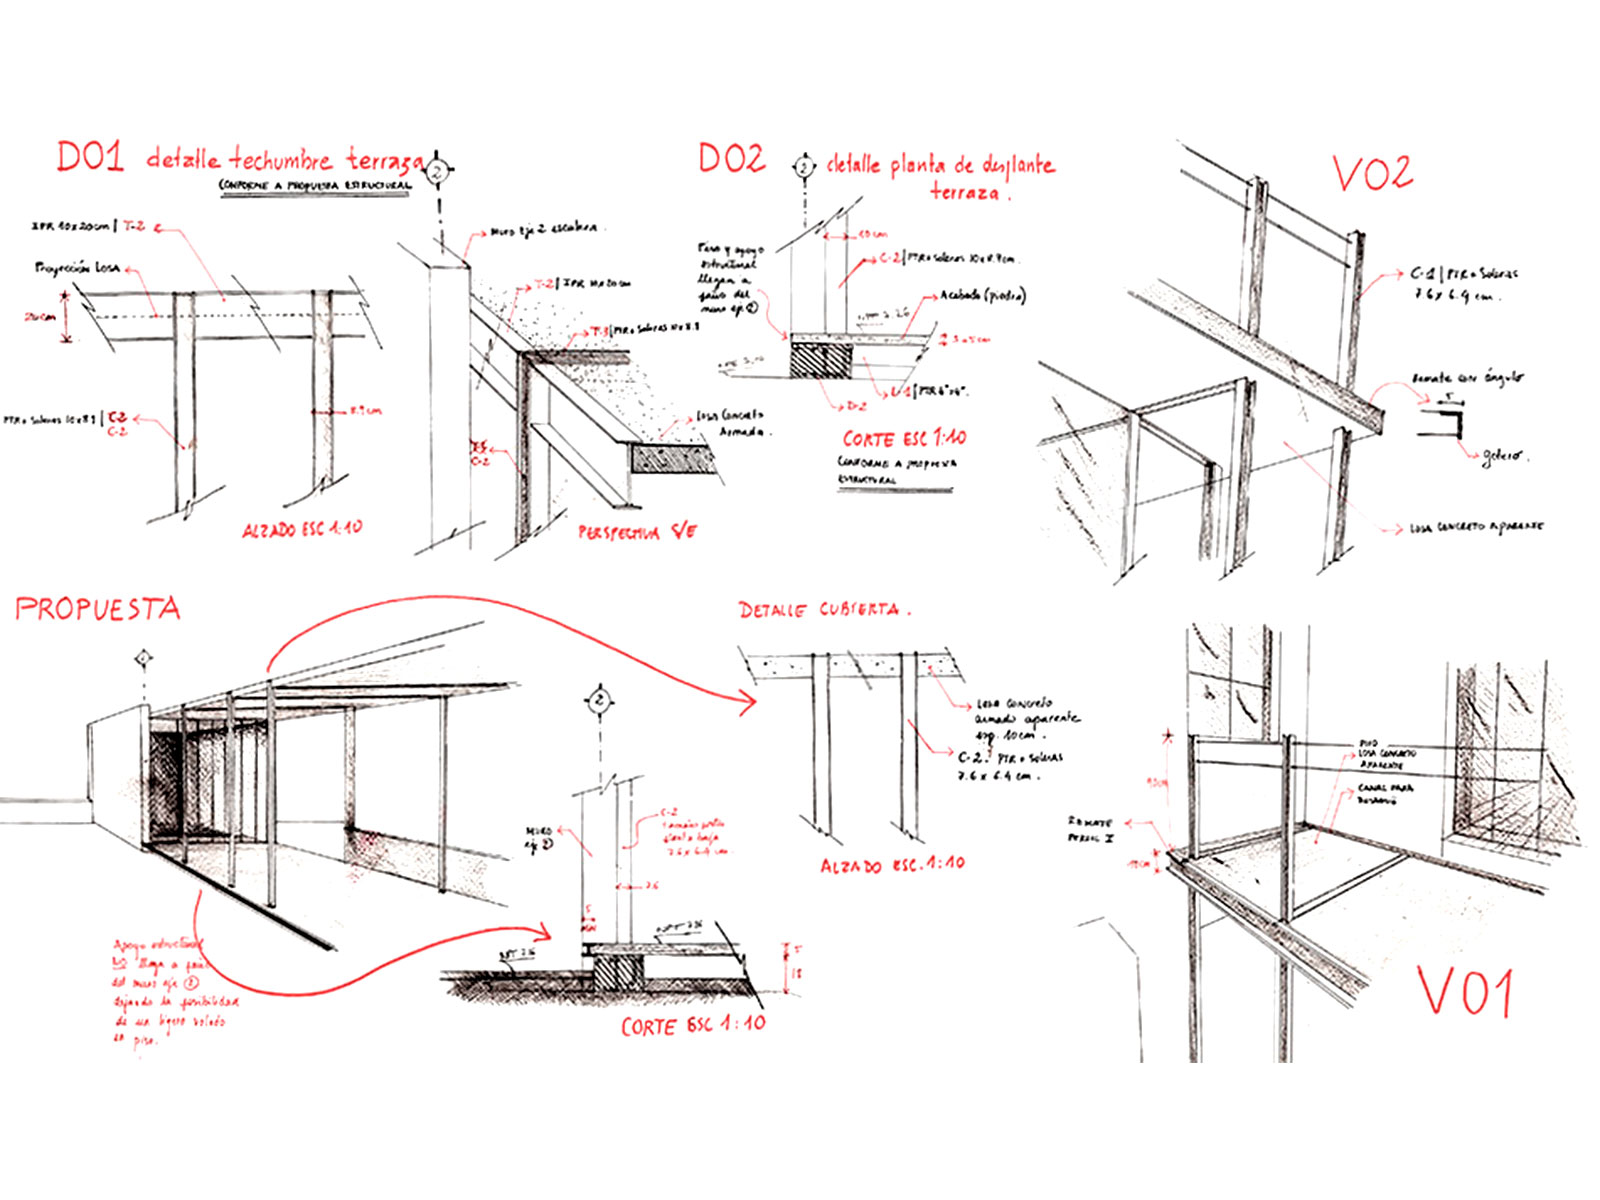 D01 detalle techumbre terraza
CONFORME A PROPUESTA ESTRUCTURAL
2
IPR 10x20cm | T-2
Proyección LOSA
20cm
PTR+Soleras 10x8.9 | C-2
C-2
8.9cm
ALZADO ESC 1:10
Muro Eje 2 escalera.
T-2 | IPR 10x20cm
T-3 | PTR+Soleras 10x8.9
LOSA CONCRETO
ARMADA.
C-2
PERSPECTIVA S/E
D02
2
detalle planta de desplante
terraza.
Piso y apoyo
estructural
llegan a
paño del
muro eje 2
10cm
C-2 | PTR+soleras 10x8.9cm.
Acabado (piedra)
PTR 4"x4".
D-2
CORTE ESC 1:10
CONFORME A PROPUESTA
ESTRUCTURAL
V02
C-1 | PTR+Soleras
7.6 x 6.4 cm.
Remate con ángulo
5
gotero.
LOSA CONCRETO APARENTE
PROPUESTA
Apoyo estructural
NO llega a paño
del muro eje 2
dejando la posibilidad
de un ligero volado
en piso.
2
MURO
eje 2
C-2
planta baja
7.6 x 6.4 cm.
7.6
5
5
15
CORTE ESC 1:10
DETALLE CUBIERTA.
LOSA CONCRETO
armado aparente
esp. 10cm.
C-2. PTR+Soleras
7.6 x 6.4 cm.
ALZADO ESC. 1:10
PISO
LOSA CONCRETO
APARENTE
CANAL PARA
REMATE
PERFIL I
V01